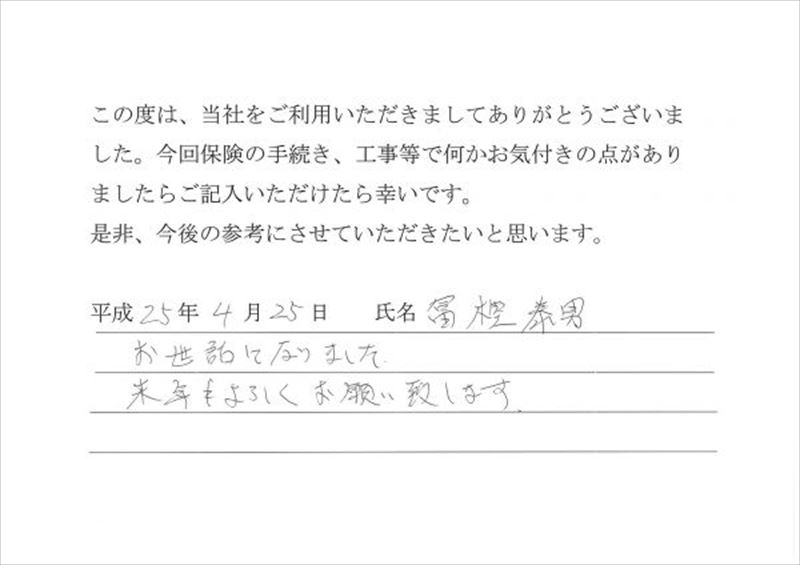 この度は、当社をご利用いただきましてありがとうございま
した。今回保険の手続き、工事等で何かお気付きの点があり
ましたらご記入いただけたら幸いです。
是非、今後の参考にさせていただきたいと思います。
平成 25年 4月 25日 氏名 冨樫泰男
お世話になりました.
来年もよろしくお願い致します.